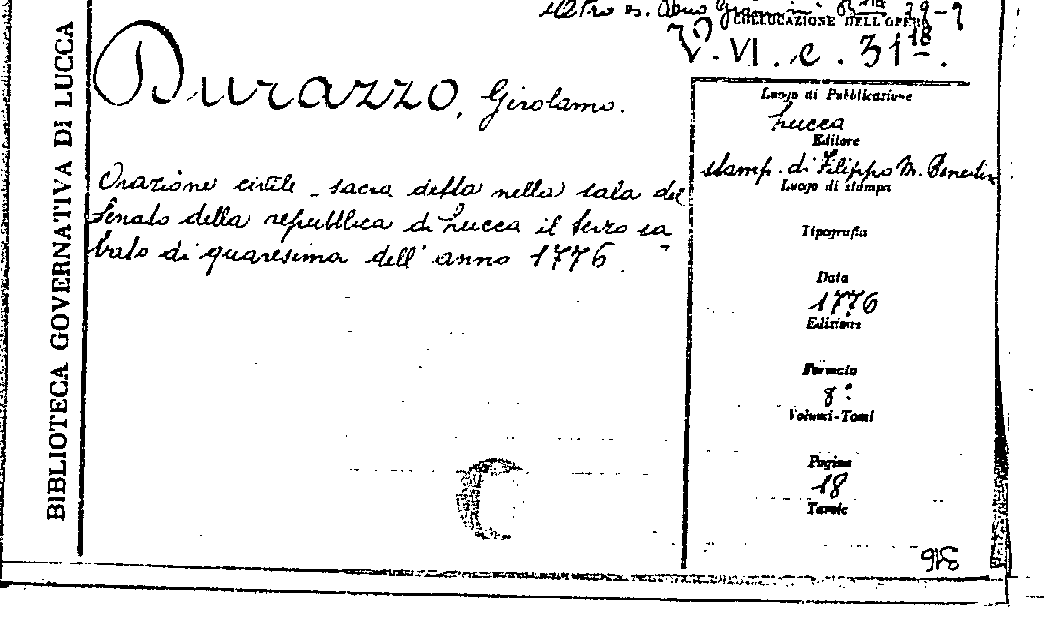 BIBLIOTECA GOVERNATIVA DI LUCCA
COLLOCAZIONE DELL'OPERA
V. VI. c. 31 18.
Durazzo, Girolamo.
Orazione civile - sacra detta nella sala del
Senato della repubblica di Lucca il terzo sa
bato di quaresima dell'anno 1776.
Luogo di Pubblicazione
Lucca
Editore
stamp. di Filippo M. Benedin
Luogo di stampa
Tipografia
Data
1776
Edizione
Formato
8°
Volumi-Tomi
Pagine
18
Tavole